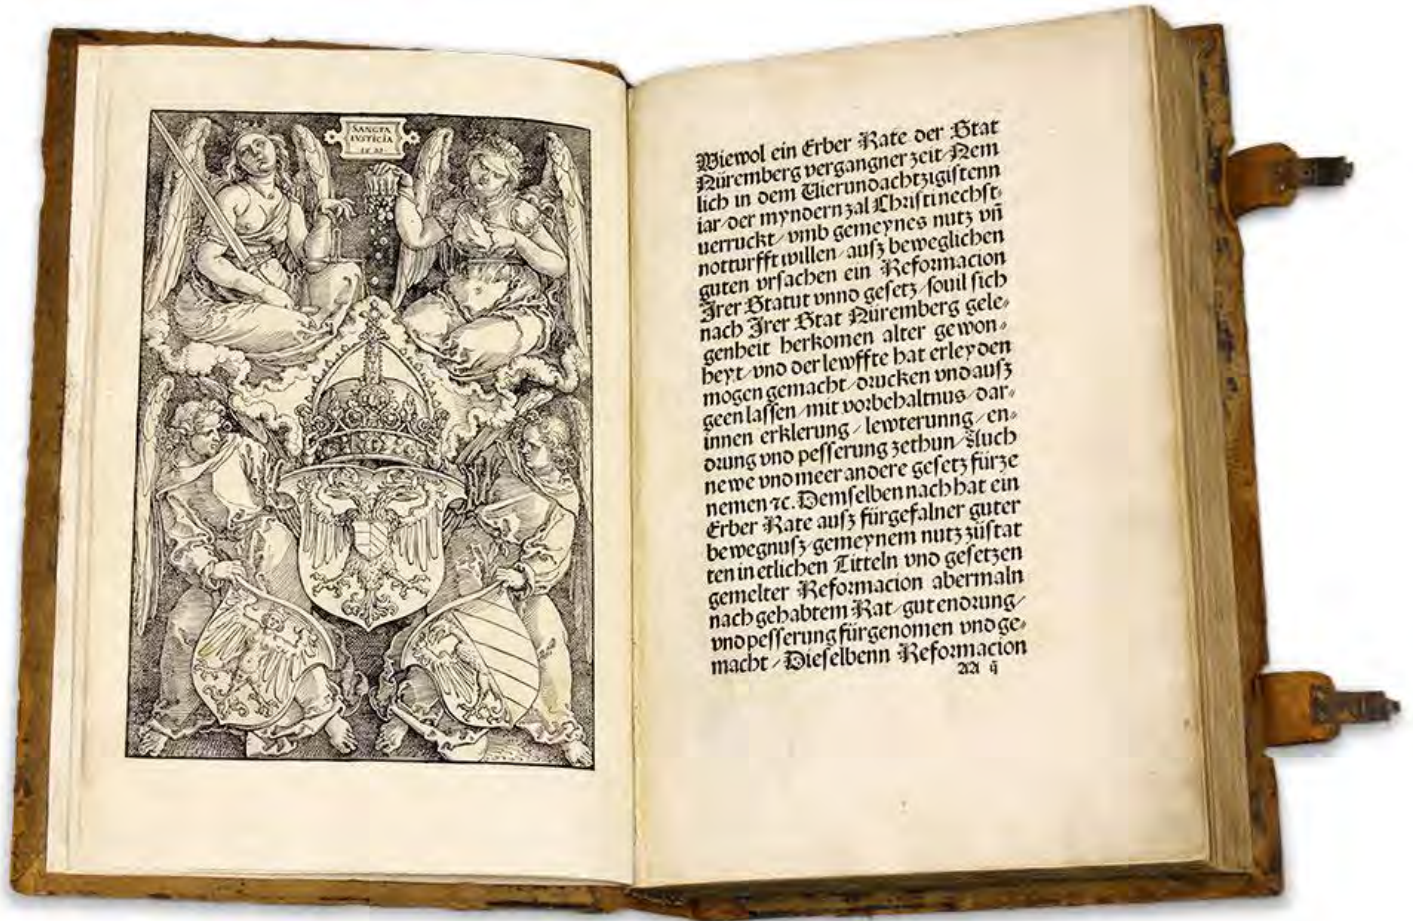 SANCTA
IVSTICIA
1521
Wiewol ein Erber Rate der Stat
Nüremberg vergangner zeit Nem
lich in dem Vierundachtzigistenn
iar/der myndern zal Christi nechst
verruckt/vmb gemeynes nutz vñ
notturfft willen/ausz beweglichen
guten vrsachen ein Reformacion
Irer Statut vnnd gesetz/souil sich
nach Irer Stat Nüremberg gele⸗
genheit herkomen alter gewon⸗
heyt/vnd der lewffte hat erleyden
mogen gemacht/drucken vnd ausz
geen lassen/mit vorbehaltnus/dar⸗
innen erklerung/lewterunng/en⸗
drung vnd pesserung zethun/Auch
newe vnd meer andere gesetz fürze
nemen ⁊c. Demselben nach hat ein
Erber Rate ausz fürgefalner guter
bewegnusz/gemeynem nutz zůstat
ten in etlichen Titteln vnd gesetzen
gemelter Reformacion abermaln
nach gehabtem Rat/gut endrung/
vnd pesserung fürgenomen vnd ge⸗
macht/Dieselbenn Reformacion
AA ij